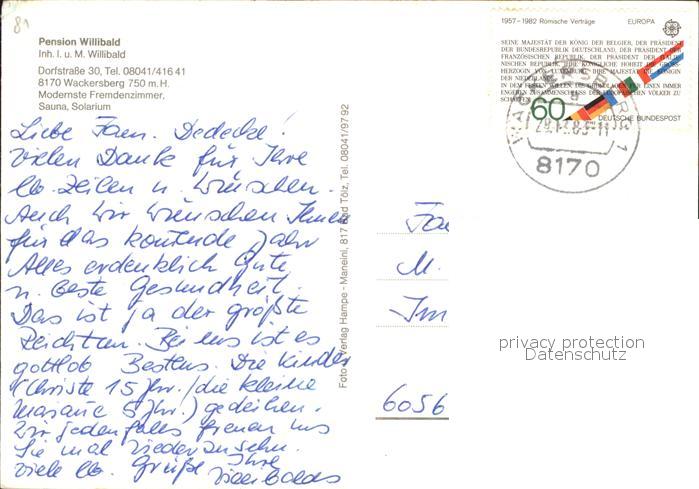 81
Pension Willibald
Inh. I. u. M. Willibald
Dorfstraße 30, Tel. 08041/416 41
8170 Wackersberg 750 m. H.
Modernste Fremdenzimmer,
Sauna, Solarium
Liebe Fam. Dedecke!
Vielen Dank für Ihre
lb. Zeilen u. Wünschen.
Auch wir wünschen Ihnen
für das komende Jahr
Alles erdenklich Gute
u. beste Gesundheit.
Das ist ja der größte
Reichtum. Bei uns ist es
gottlob Bestens. Die Kinder
(Christe 15 Jhr. / die kleine
Mariane 5 Jhr.) gedeihen.
Wir jedenfalls freuen uns
Sie mal wiederzusehn.
Viele lb. Grüße Ihre
Willibalds
Foto u. Verlag Hampe - Maneini, 817 Bad Tölz, Tel. 08041/9792
1957-1982 Römische Verträge EUROPA
SEINE MAJESTÄT DER KÖNIG DER BELGIER, DER PRÄSIDENT
DER BUNDESREPUBLIK DEUTSCHLAND, DER PRÄSIDENT DER
FRANZÖSISCHEN REPUBLIK, DER PRÄSIDENT DER ITALIE-
NISCHEN REPUBLIK, IHRE KÖNIGLICHE HOHEIT DIE GROSS-
HERZOGIN VON LUXEMBURG, IHRE MAJESTÄT DIE KÖNIGIN
DER NIEDERLANDE
IN DEM FESTEN WILLEN, DIE GRUNDLAGEN FÜR EINEN IMMER
ENGEREN ZUSAMMENSCHLUSS DER EUROPÄISCHEN VÖLKER ZU
SCHAFFEN
60
DEUTSCHE BUNDESPOST
WACKERSBERG 1
8170
Fa
M.
Im
6056
privacy protection
Datenschutz